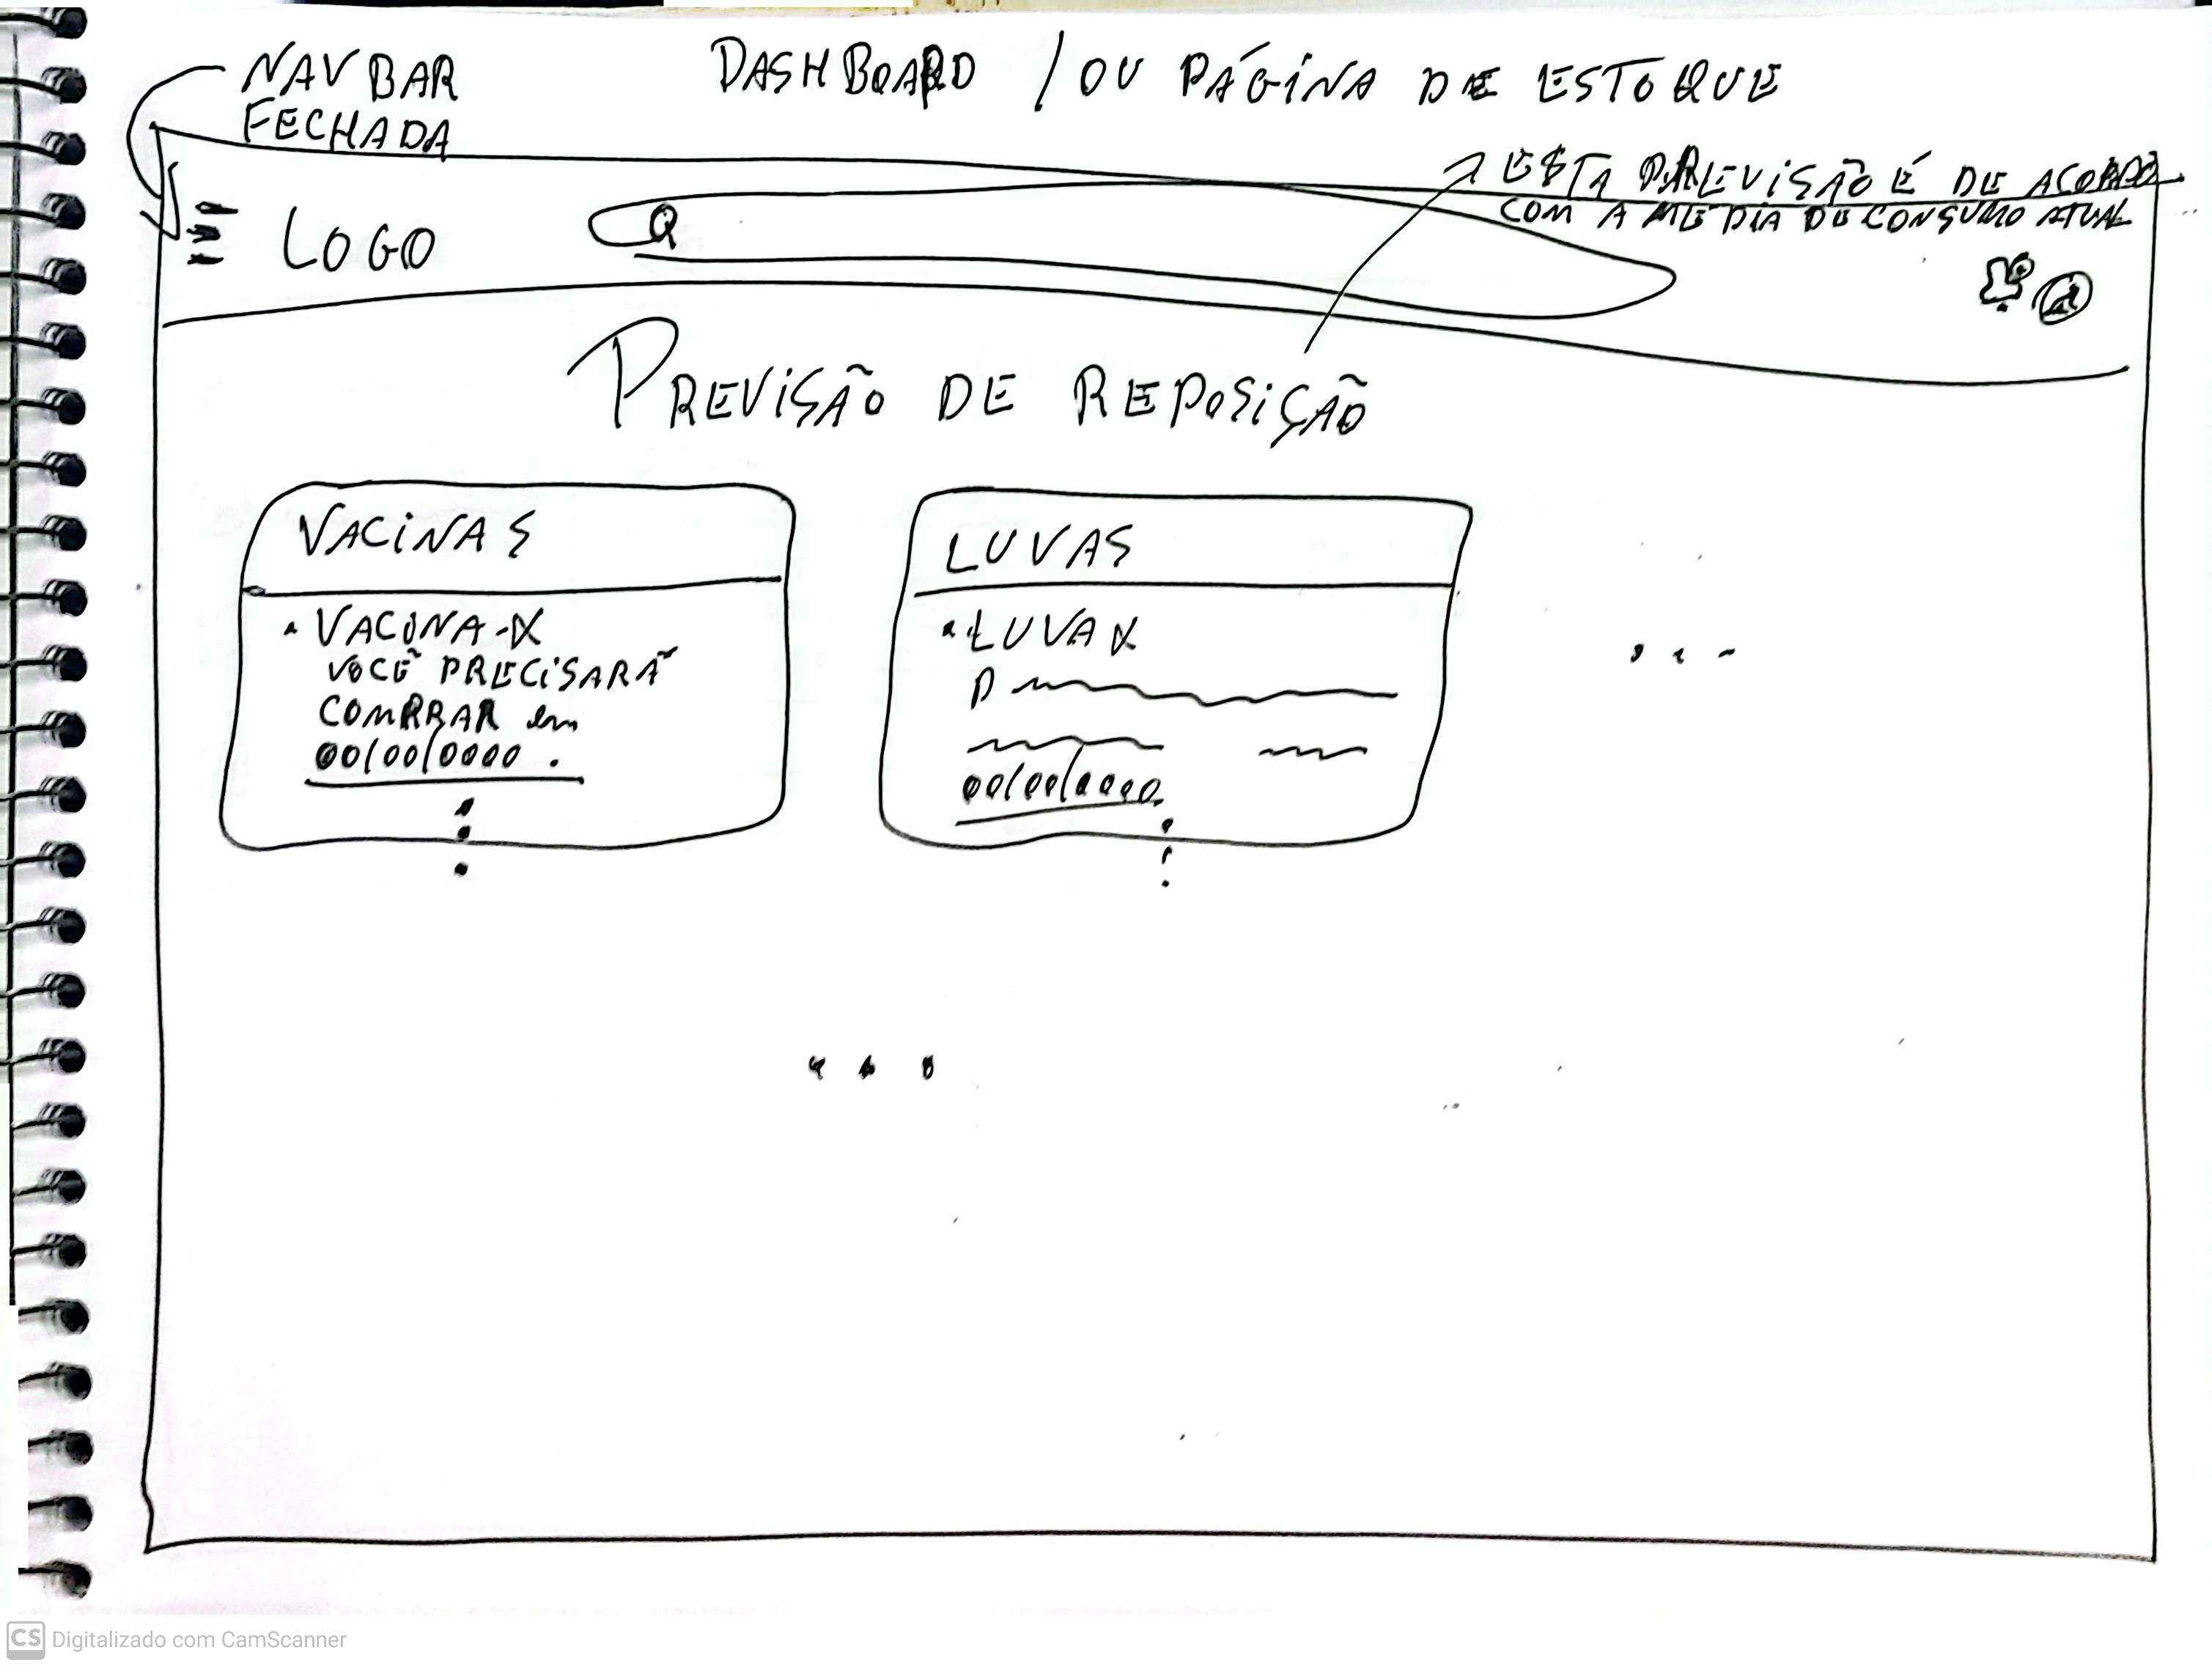 NAVBAR
FECHADA
DASHBOARD / OU PÁGINA DE ESTOQUE
ESTA PREVISÃO É DE ACORDO
COM A MÉDIA DE CONSUMO ATUAL
LOGO
PREVISÃO DE REPOSIÇÃO
VACINAS
• VACINA-X
VOCÊ PRECISARÁ
COMPRAR em
00/00/0000.
LUVAS
• LUVA X
P
00/00/0000.
CS Digitalizado com CamScanner